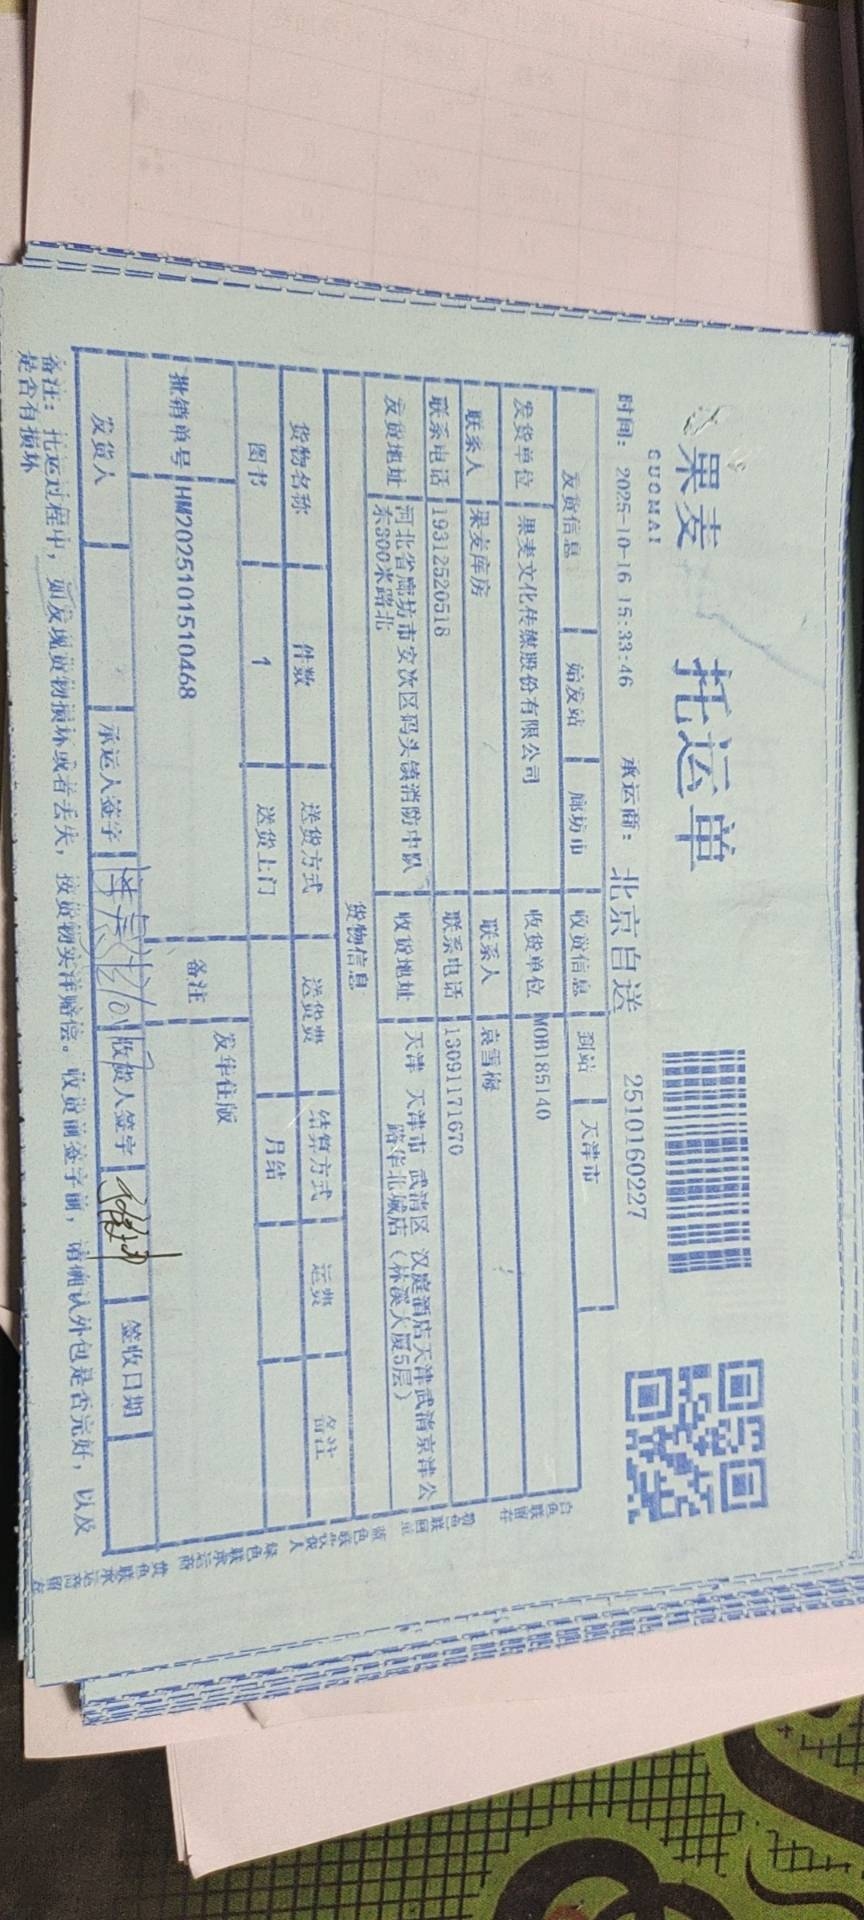 果麦 托运单
GUOMAI
时间： 2025-10-16 15:33:46 承运商： 北京自送 2510160227
发货信息 始发站 廊坊市 收货信息 到站 天津市
发货单位 果麦文化传媒股份有限公司 收货单位 MOB185140
联系人 果麦库房 联系人 袁雪梅
联系电话 19312520518 联系电话 13091171670
发货地址 河北省廊坊市安次区码头镇消防中队 收货地址 天津 天津市 武清区 汉庭酒店天津武清京津公
东300米路北 路华北城店（林溪大厦5层）
货物信息
货物名称 件数 送货方式 送货费 结算方式 运费 备注
图书 1 送货上门 月结
批销单号 HM2025101510468 备注 发华住版
发货人 承运人签字 收货人签字 签收日期
备注： 托运过程中，如发现货物损坏或者丢失，按货物实洋赔偿。收货前签字前，请确认外包是否完好，以及
是否有损坏
白色联留存
蓝色联收货人
绿色联承运商
黄色联承运商留存